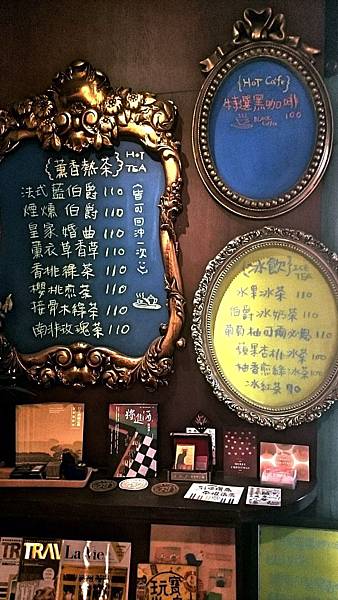 {薰香熱茶} HOT TEA
法式藍伯爵 110
煙燻伯爵 110
皇家婚曲 110
薰衣草香草 110
香桃綠茶 110
櫻桃煎茶 110
接骨木綠茶 110
南非玫瑰茶 110
(皆可回沖一次)
{HOT Cafe}
特選黑咖啡
BLACK Coffee 100
{冰飲} ICE TEA
水果冰茶 110
伯爵冰奶茶 110
葡萄柚可爾必思 110
蘋果杏桃冰茶 100
柚香煎綠冰茶 100
冰紅茶 90
TRAVEL
La Vie
玩賞